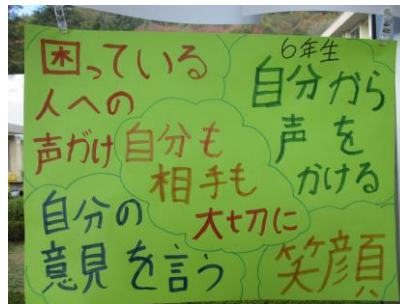 困っている
人への
声がけ
6年生
自分から
声を
かける
自分も
相手も
大切に
自分の
意見を言う
笑顔